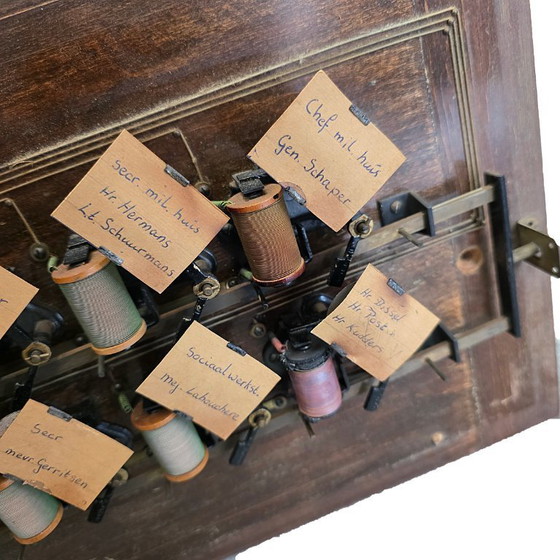 Chef mil. huis
Gen. Schaper
Secr. mil. huis
Hr. Hermans
Lt. Schuurmans
Hr.
Hr. Post
Hr.
Sociaal werkst.
Mej. Labouchere
Secr
mevr. Gerritsen
er